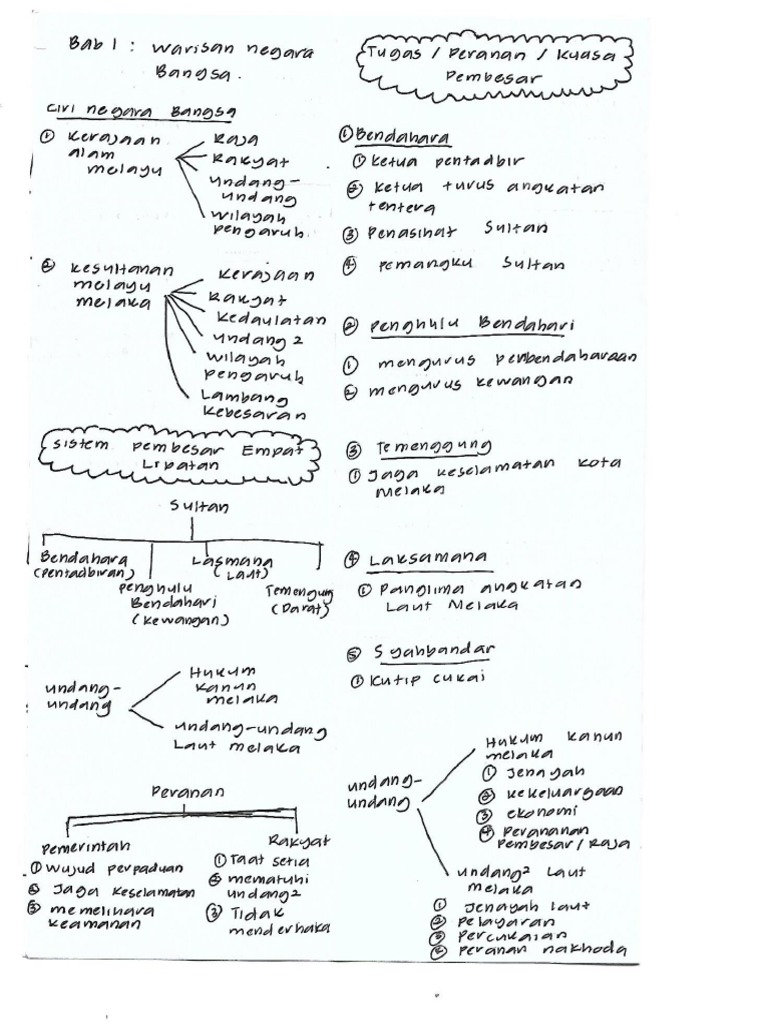 Bab 1 : Warisan negara
Bangsa.
Ciri negara Bangsa
① Kerajaan
alam
melayu
Raja
Rakyat
undang-
undang
wilayah
pengaruh
② Kesultanan
melayu
melaka
Kerajaan
Rakyat
Kedaulatan
undang 2
wilayah
pengaruh
Lambang
Kebesaran
Sistem pembesar Empat
Lipatan
Sultan
Bendahara
(pentadbiran)
penghulu
Bendahari
(Kewangan)
Lasmana
(Laut)
Temengung
(Darat)
undang-
undang
Hukum
kanun
melaka
undang-undang
Laut melaka
Peranan
pemerintah
① Wujud perpaduan
② Jaga keselamatan
③ memelihara
keamanan
Rakyat
① Taat setia
② mematuhi
undang2
③ Tidak
menderhaka
Tugas / Peranan / Kuasa
Pembesar
① Bendahara
① Ketua pentadbir
② Ketua turus angkatan
tentera
③ Penasihat Sultan
④ Pemangku Sultan
② Penghulu Bendahari
① mengurus perbendaharaan
② mengurus kewangan
③ Temenggung
① Jaga keselamatan kota
melaka
④ Laksamana
① Panglima angkatan
Laut Melaka
⑤ Syahbandar
① Kutip cukai
undang-
undang
Hukum kanun
melaka
① Jenayah
② kekeluargaan
③ ekonomi
④ Perananan
Pembesar / Raja
undang² Laut
melaka
① Jenayah laut
② pelayaran
③ percukaian
④ peranan nakhoda